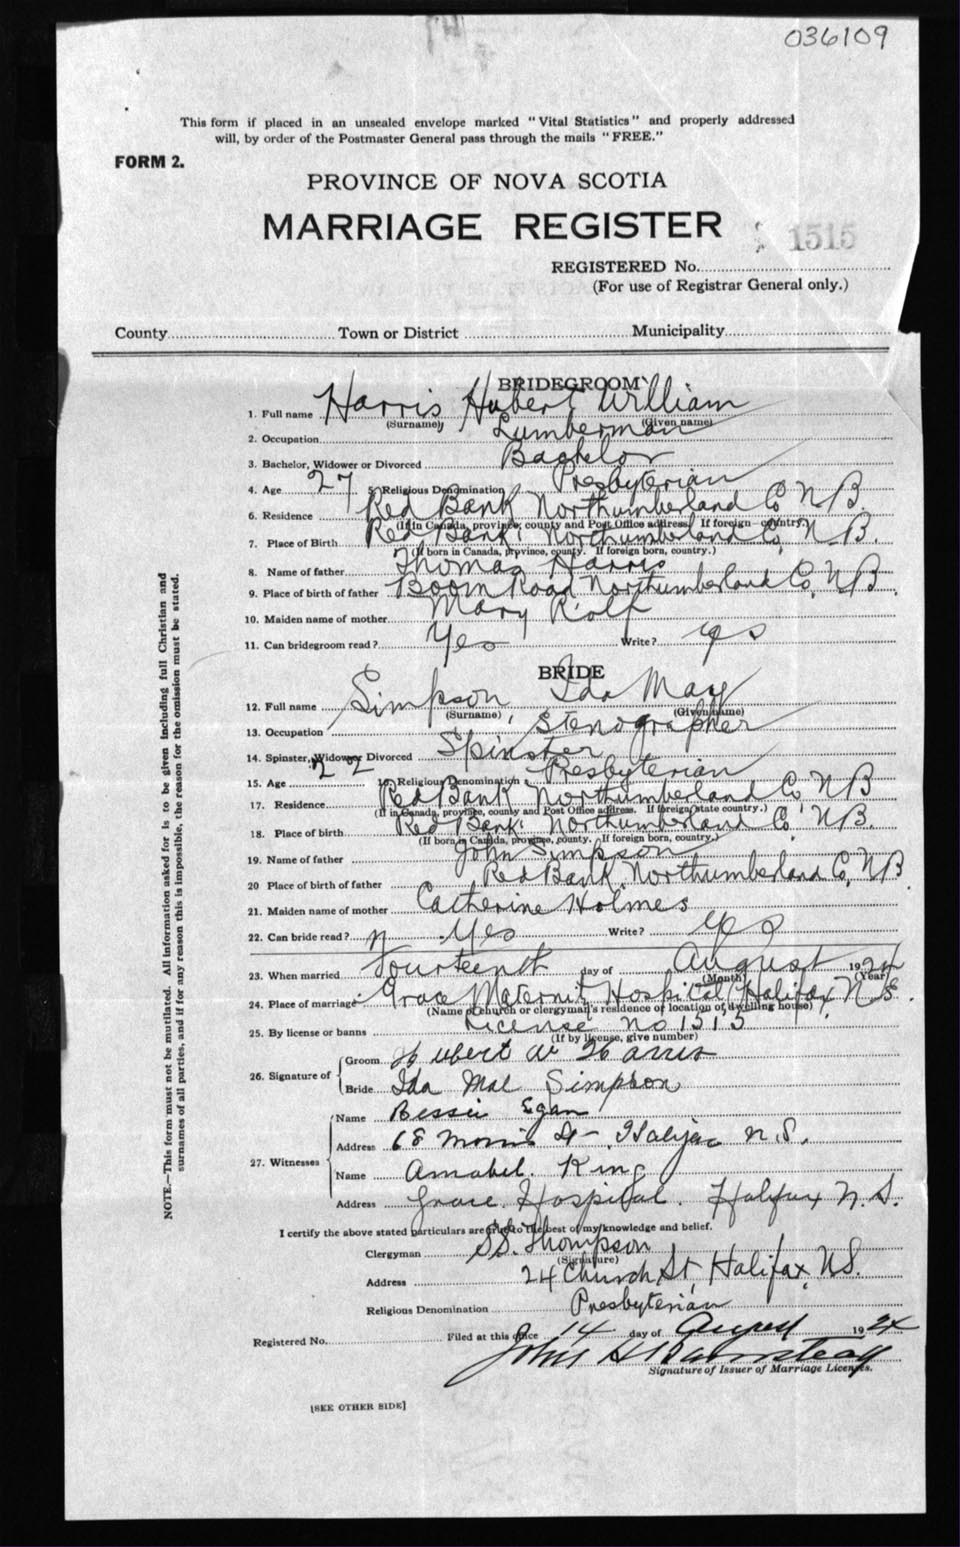 036109
This form if placed in an unsealed envelope marked "Vital Statistics" and properly addressed
will, by order of the Postmaster General pass through the mails "FREE."
FORM 2.
PROVINCE OF NOVA SCOTIA
MARRIAGE REGISTER
1515
REGISTERED No.
(For use of Registrar General only.)
County Town or District Municipality
BRIDEGROOM
1. Full name Harris Hubert William
(Surname) (Given name)
2. Occupation Lumberman
3. Bachelor, Widower or Divorced Bachelor
4. Age 27 5. Religious Denomination Presbyterian
6. Residence Red Bank Northumberland Co N B.
(If in Canada, province, county and Post Office address. If foreign country.)
7. Place of Birth Red Bank. Northumberland Co, N.B.
(If born in Canada, province, county. If foreign born, country.)
8. Name of father Thomas Harris
9. Place of birth of father Boom Road Northumberland Co, N B.
10. Maiden name of mother Mary
11. Can bridegroom read? Yes Write? yes
BRIDE
12. Full name Simpson, Ida May
(Surname) (Given name)
13. Occupation Stenographer
14. Spinster, Widow or Divorced Spinster
15. Age 22 16. Religious Denomination Presbyterian
17. Residence Red Bank Northumberland Co N B
(If in Canada, province, county and Post Office address. If foreign state country.)
18. Place of birth Red Bank. Northumberland Co, N.B.
(If born in Canada, province, county. If foreign born, country.)
19. Name of father John Simpson
20 Place of birth of father Red Bank, Northumberland Co, N B.
21. Maiden name of mother Catherine Holmes
22. Can bride read? Yes Write? yes
23. When married Fourteenth day of August 1924
(Month) (Year)
24. Place of marriage Grace Maternity Hospital, Halifax, N.S.
(Name of church or clergyman's residence or location of dwelling house)
25. By license or banns License no 1515
(If by license, give number)
26. Signature of
Groom Hubert W Harris
Bride Ida Mae Simpson
27. Witnesses
Name Bessie Egan
Address 68 Morris St Halifax N.S.
Name Annabel. King
Address Grace. Hospital. Halifax N.S.
I certify the above stated particulars are true to the best of my knowledge and belief.
Clergyman S.S. Thompson
(Signature)
Address 24 Church St, Halifax, N.S.
Religious Denomination Presbyterian
Registered No. Filed at this office 14 day of August 1924
John H Barnstead
Signature of Issuer of Marriage Licenses.
[SEE OTHER SIDE]
NOTE.—This form must not be mutilated. All information asked for is to be given including full Christian and
surnames of all parties, and if for any reason this is impossible, the reason for the omission must be stated.